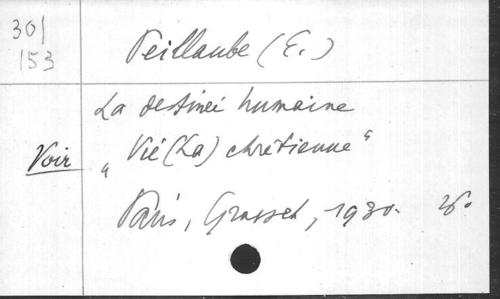 301
153
Peillaube (E.)
La destinée humaine
Voir "Vie (La) chrétienne"
Paris, Grasset, 1930.